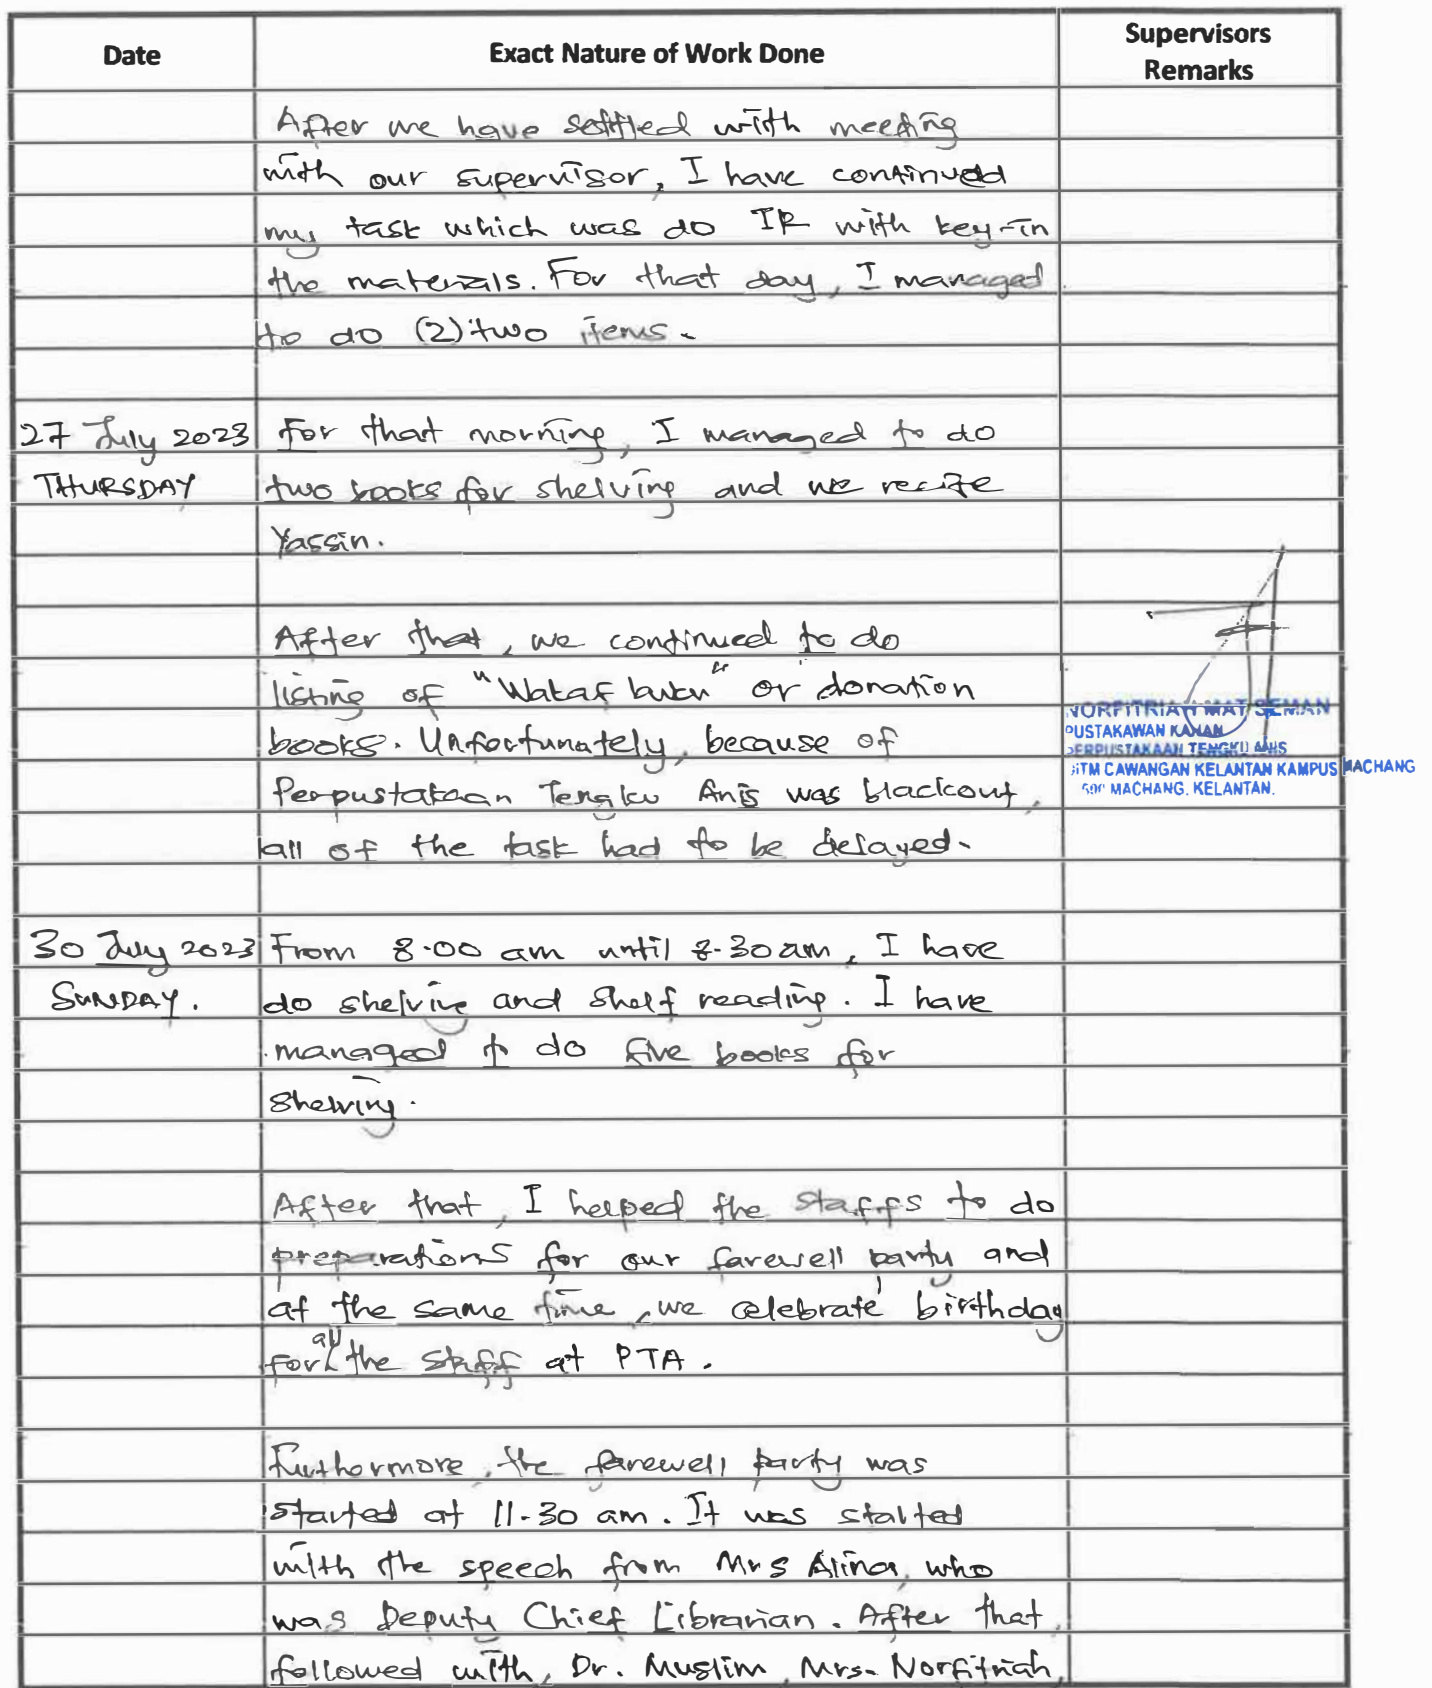 Date Exact Nature of Work Done Supervisors Remarks
After we have settled with meeting
with our supervisor, I have continued
my task which was do IR with key-in
the materials. For that day, I managed
to do (2) two items.
27 July 2023 For that morning, I managed to do
THURSDAY two books for shelving and we recite
Yassin.
After that, we continued to do
listing of "Wakaf buku" or donation
books. Unfortunately, because of
Perpustakaan Tengku Anis was blackout,
all of the task had to be delayed.
NORFITRIAH MAT SEMAN
PUSTAKAWAN KANAN
PERPUSTAKAAN TENGKU ANIS
UITM CAWANGAN KELANTAN KAMPUS MACHANG
MACHANG, KELANTAN.
30 July 2023 From 8.00 am until 8.30 am, I have
SUNDAY. do shelving and shelf reading. I have
managed to do five books for
shelving.
After that, I helped the staffs to do
preparations for our farewell party and
at the same time, we celebrate birthday
for all the staff at PTA.
Futhermore, the farewell party was
started at 11.30 am. It was started
with the speech from Mrs Alina, who
was Deputy Chief Librarian. After that,
followed with, Dr. Muslim, Mrs. Norfitriah,